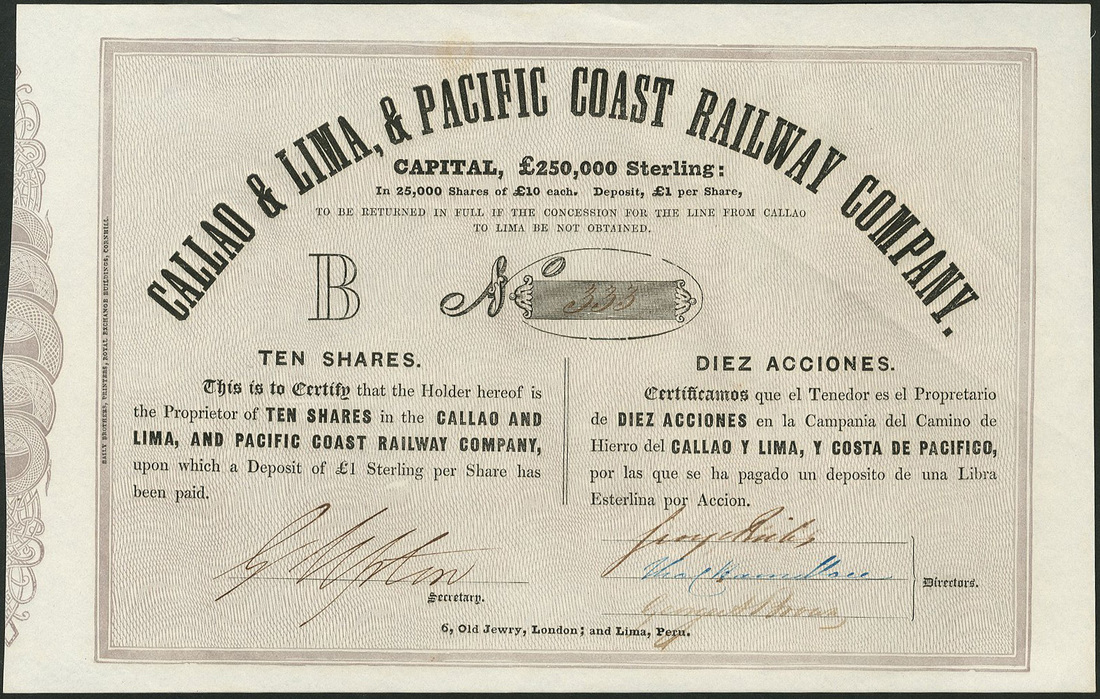 CALLAO & LIMA, & PACIFIC COAST RAILWAY COMPANY.
CAPITAL, £250,000 Sterling:
In 25,000 Shares of £10 each. Deposit, £1 per Share,
TO BE RETURNED IN FULL IF THE CONCESSION FOR THE LINE FROM CALLAO
TO LIMA BE NOT OBTAINED.
B No 333
TEN SHARES.
This is to Certify that the Holder hereof is
the Proprietor of TEN SHARES in the CALLAO AND
LIMA, AND PACIFIC COAST RAILWAY COMPANY,
upon which a Deposit of £1 Sterling per Share has
been paid.
DIEZ ACCIONES.
Certificamos que el Tenedor es el Propretario
de DIEZ ACCIONES en la Campania del Camino de
Hierro del CALLAO Y LIMA, Y COSTA DE PACIFICO,
por las que se ha pagado un deposito de una Libra
Esterlina por Accion.
G Upton
Secretary.
George
Directors.
6, Old Jewry, London; and Lima, Peru.
BAILY BROTHERS, PRINTERS, ROYAL EXCHANGE BUILDINGS, CORNHILL.